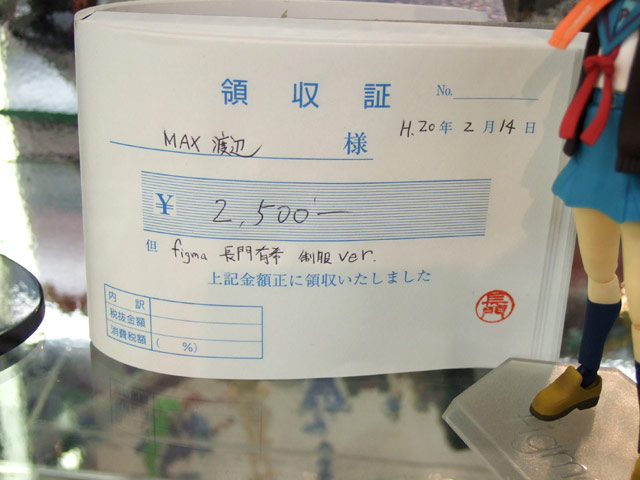 領収証
No.
MAX 渡辺 様
H.20年 2月 14日
¥ 2,500-
但 figma 長門有希 制服 ver.
上記金額正に領収いたしました
内訳
税抜金額
消費税額 ( %)
長門
figma